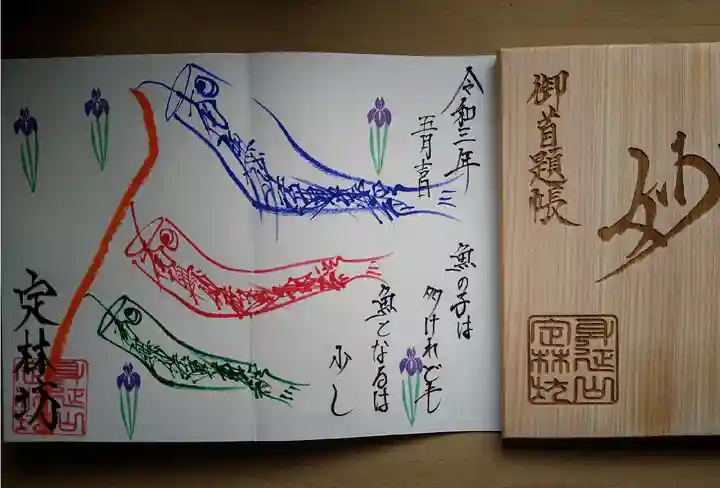 令和三年
五月吉日
魚の子は
多けれども
魚となるは
少し
定林坊
身延山
定林坊
御首題帳
妙
身延山
定林坊